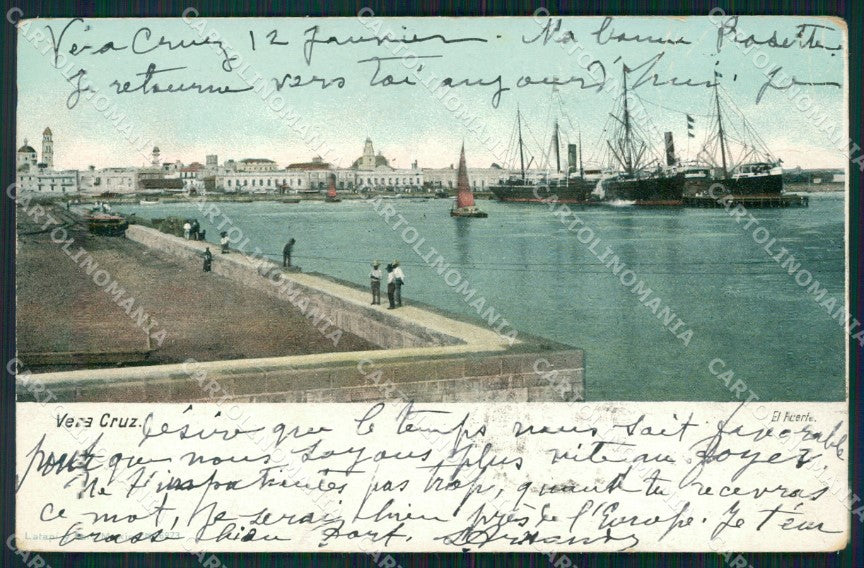 Vera Cruz 12 Janvier. Ma bonne Prosette.
Je retourne vers toi aujourd'hui. Je
Vera Cruz.
El Puerto.
désire que le temps nous soit favorable
pour que nous soyons plus vite au foyer.
Ne t'impatientes pas trop, quand tu recevras
ce mot, Je serai bien près de l'Europe. Je t'em
brasse bien fort.
CARTOLINOMANIA